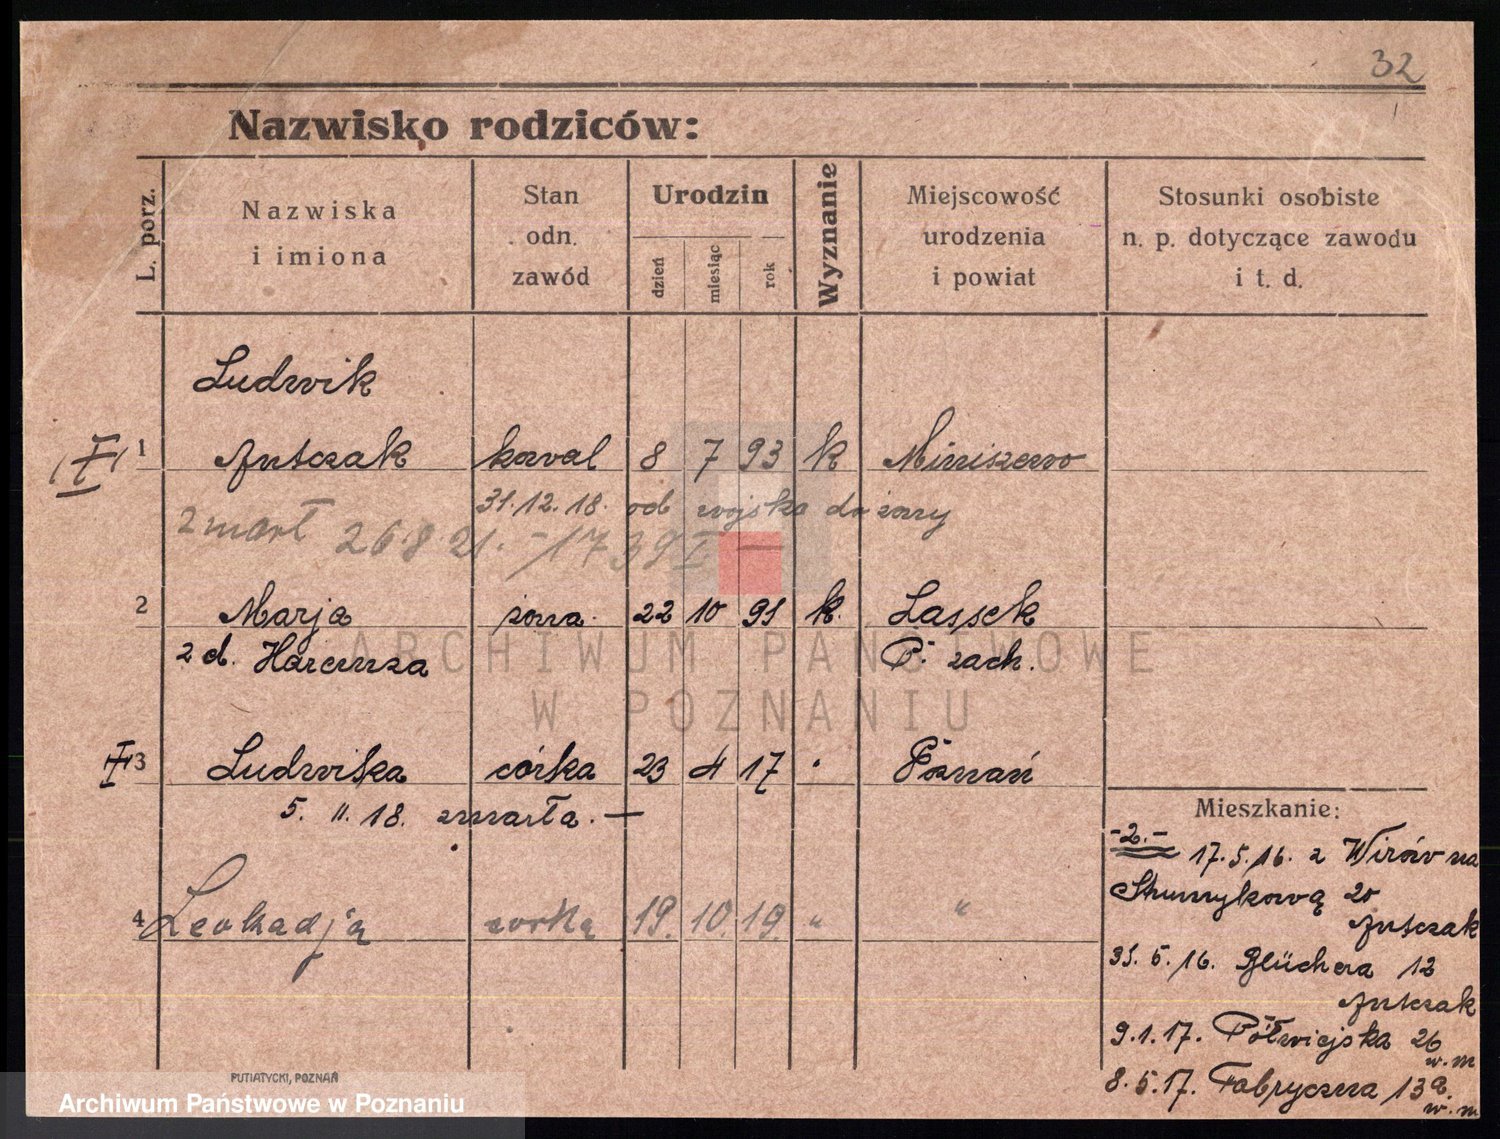 32
Nazwisko rodziców:
L. porz.
Nazwiska
i imiona
Stan
odn.
zawód
Urodzin
dzień
miesiąc
rok
Wyznanie
Miejscowość
urodzenia
i powiat
Stosunki osobiste
n. p. dotyczące zawodu
i t. d.
Ludwik
1 Antczak kowal 8 7 93 k Miniszewo
31.12.18. od wojska do żony
zmarł 26.8.21. - 1739 I —
2 Marja żona. 22 10 91 k. Lassek
z d. Harenza P. zach.
3 Ludwika córka 23 4 17 . Poznań
5. 11. 18. zmarła. —
4 Leokadja corka 19. 10. 19. " "
Mieszkanie:
-2.- 17.5.16. z Wirów na
20
Antczak
31.5.16. Blüchera 12
Antczak
9.1.17. Półwiejska 26
w. m
8.5.17. Fabryczna 13a.
w. m
ARCHIWUM PAŃSTWOWE
W POZNANIU
PUTIATYCKI, POZNAŃ
Archiwum Państwowe w Poznaniu